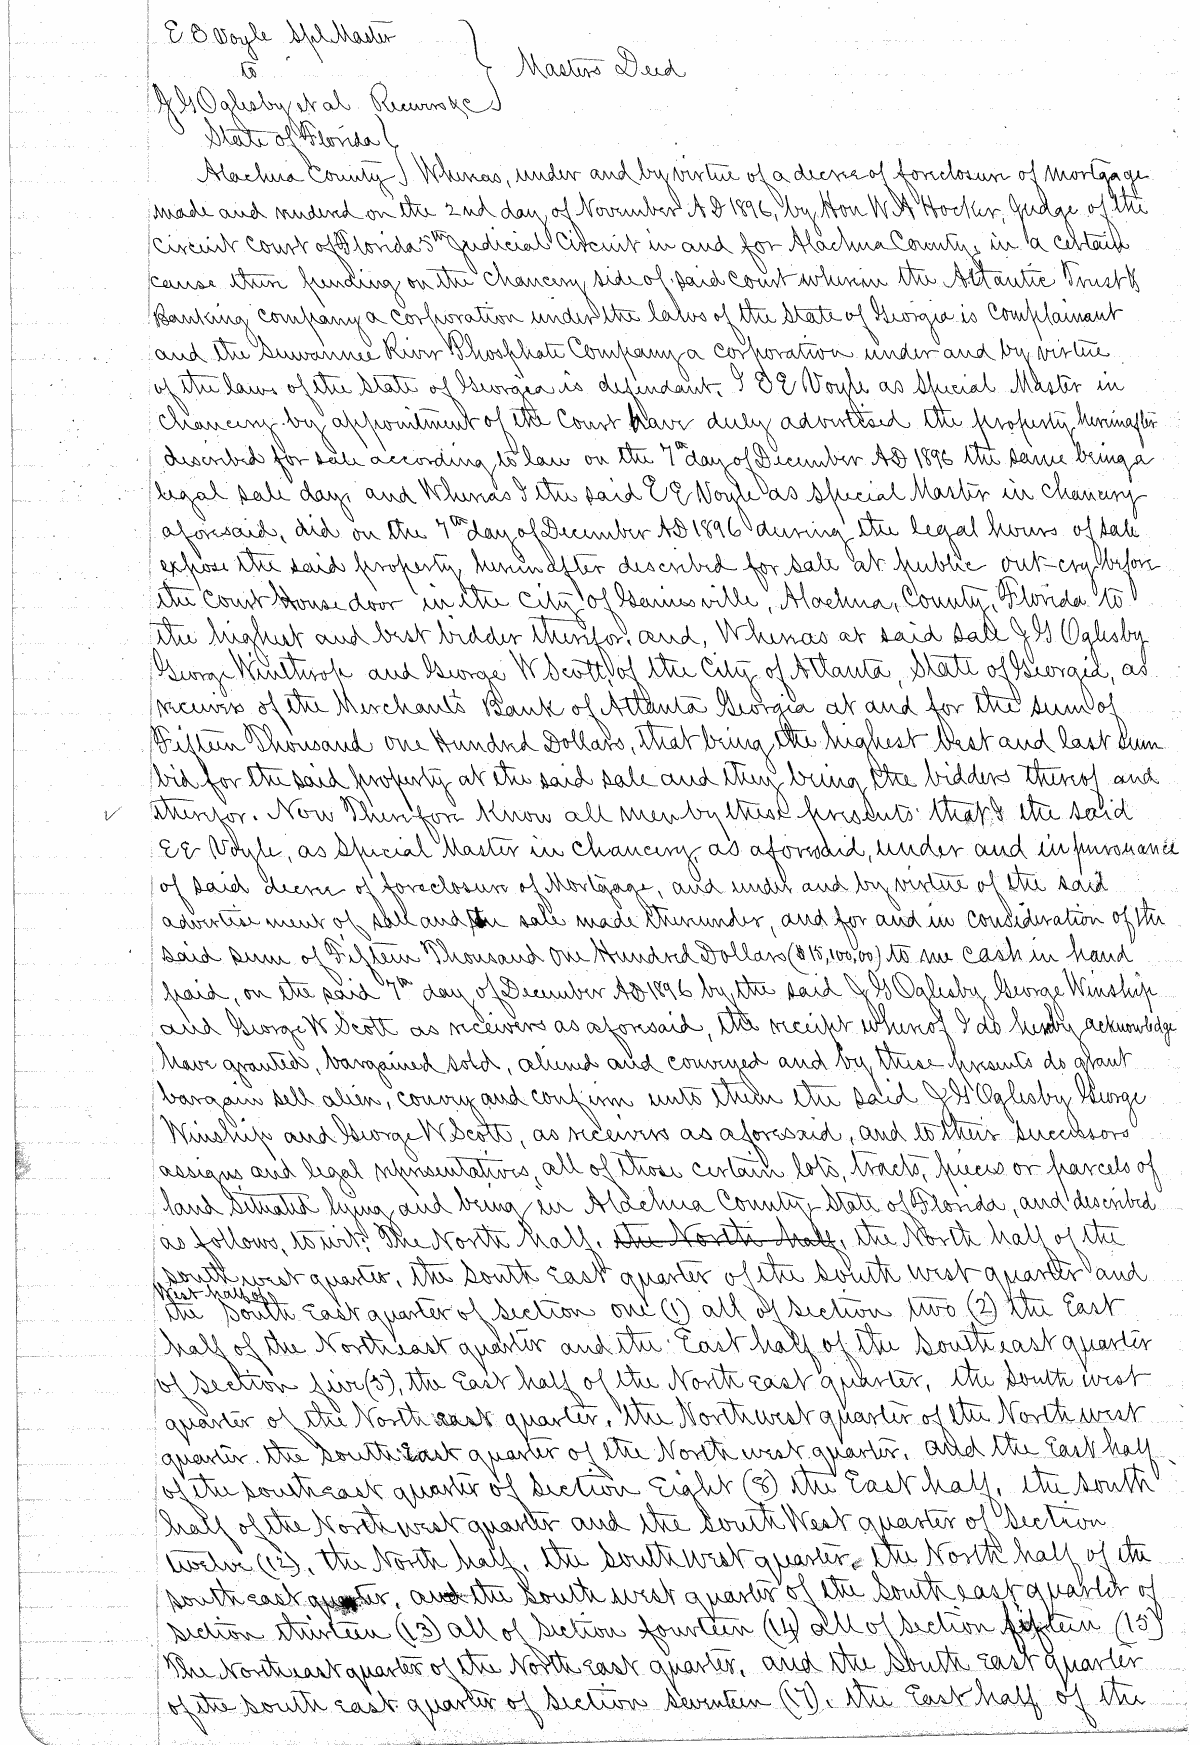 E E Voyle Spl Master
to
J G Oglesby et al Receivers &c
Masters Deed
State of Florida
Alachua County Whereas, under and by virtue of a decree of foreclosure of mortgage
made and rendered on the 2nd day of November AD 1896, by Hon W A Hocker, Judge of the
Circuit Court of Florida 5th Judicial Circuit in and for Alachua County, in a certain
cause then pending on the Chancery side of said Court wherein the Atlantic Trust &
Banking Company a corporation under the laws of the State of Georgia is complainant
and the Suwannee River Phosphate Company a corporation under and by virtue
of the laws of the State of Georgia is defendant, I E E Voyle as Special Master in
Chancery by appointment of the Court have duly advertised the property hereinafter
described for sale according to law on the 7th day of December AD 1896 the same being a
legal sale day, and Whereas I the said E E Voyle as Special Master in Chancery
aforesaid, did on the 7th day of December AD 1896 during the legal hours of sale
expose the said property hereinafter described for sale at public out-cry before
the Court House door in the City of Gainesville, Alachua, County, Florida to
the highest and best bidder therefor, and, Whereas at said sale J G Oglesby
George Winthrop and George W Scott of the City of Atlanta, State of Georgia, as
receivers of the Merchants Bank of Atlanta Georgia at and for the sum of
Fifteen Thousand one Hundred Dollars, that being the highest best and last sum
bid for the said property at the said sale and they being the bidders thereof and
therefor. Now Therefore Know all men by these presents that I the said
E E Voyle, as Special Master in Chancery, as aforesaid, under and in pursuance
of said decree of foreclosure of Mortgage, and under and by virtue of the said
advertisement of sale and the sale made thereunder, and for and in consideration of the
said sum of Fifteen Thousand One Hundred Dollars ($15,100,00) to me cash in hand
paid, on the said 7th day of December AD 1896 by the said J G Oglesby George Winship
and George W Scott as receivers as aforesaid, the receipt whereof I do hereby acknowledge
have granted, bargained sold, aliened and conveyed and by these presents do grant
bargain sell alien, convey and confirm unto them the said J G Oglesby George
Winship and George W Scott, as receivers as aforesaid, and to their successors
assigns and legal representatives, all of those certain lots, tracts, pieces or parcels of
land situated lying and being in Alachua County State of Florida, and described
as follows, to wit: The North half, the North half, the North half of the
South west quarter, the South East quarter of the South west quarter and
West half of
the South East quarter of Section one (1) all of Section two (2) the East
half of the Northeast quarter and the East half of the Southeast quarter
of Section five (5), the East half of the North East quarter, the South west
quarter of the North east quarter, the Northwest quarter of the North west
quarter. the South East quarter of the North west quarter, and the East half
of the southeast quarter of Section Eight (8) the East half, the South
half of the North west quarter and the South West quarter of Section
twelve (12), the North half, the Southwest quarter, the North half of the
south east quarter, and the South west quarter of the South east quarter of
Section thirteen (13) all of Section fourteen (14) all of Section fifteen (15)
The Northeast quarter of the North East quarter, and the South East quarter
of the South East quarter of Section Seventeen (17), the East half of the